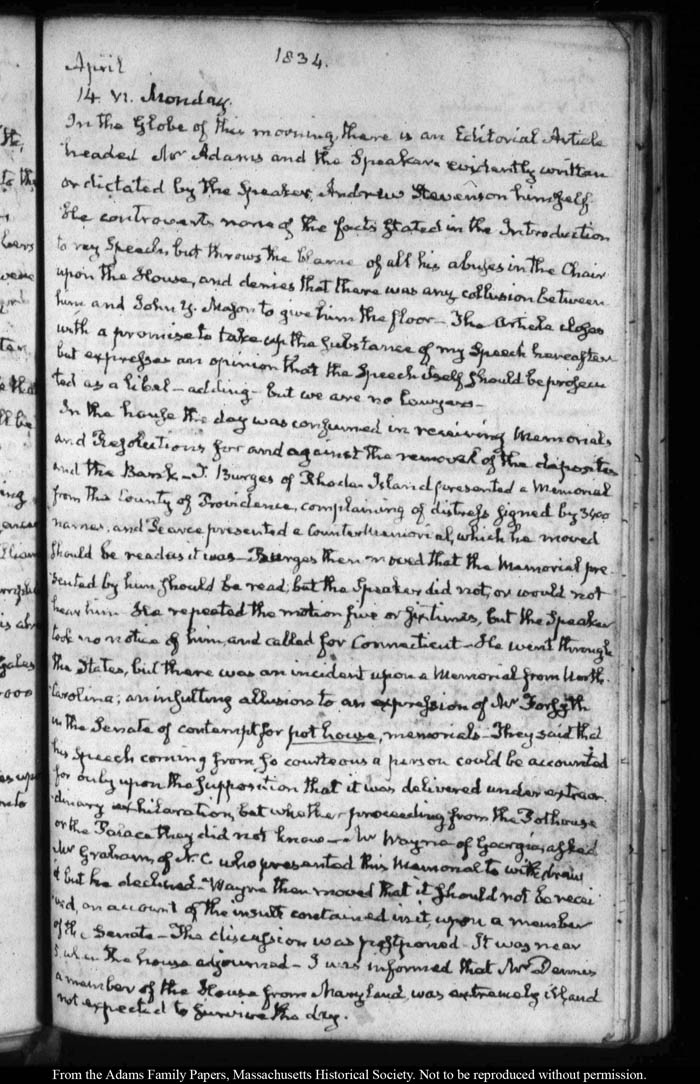 1834.
April
14. VI. Monday.
In the Globe of this morning, there is an Editorial Article
headed Mr Adams and the Speaker. evidently written
or dictated by the Speaker, Andrew Stevenson himself.
He controverts none of the facts stated in the Introduction
to my Speech, but throws the blame of all his abuses in the Chair
upon the House, and denies that there was any collusion between
him and John Y. Mason to give him the floor — The Article closes
with a promise to take up the substance of my Speech hereafter
but expresses an opinion that the Speech itself should be prosecu
ted as a libel — adding — but we are no lawyers —
In the house the day was consumed in receiving Memorials
and Resolutions for and against the removal of the deposites
and the Bank — T. Burges of Rhode Island presented a Memorial
from the County of Providence, complaining of distress signed by 3400
names, and Pearce presented a Counter Memorial, which he moved
should be read as it was — Burges then moved that the Memorial pre-
sented by him should be read; but the Speaker did not, or would not
hear him — He repeated the motion five or six times, but the Speaker
took no notice of him, and called for Connecticut — He went through
the States, but there was an incident upon a Memorial from North-
Carolina; an insulting allusion to an expression of Mr Forsyth
in the Senate of contempt for pot house, memorials — They said that
his Speech coming from so courteous a person could be accounted
for only upon the supposition that it was delivered under extraor-
dinary exhilaration, but whether proceeding from the Pothouse
or the Palace they did not know — Mr Wayne of Georgia, asked
Mr Graham, of N. C who presented this Memorial to withdraw
it but he declined — Wayne then moved that it should not be recei
ved, on account of the insult contained in it, upon a member
of the Senate — The discussion was postponed — It was near
5. when the house adjourned — I was informed that Mr Dennis
a member of the House from Maryland, was extremely ill, and
not expected to survive the day.
From the Adams Family Papers, Massachusetts Historical Society. Not to be reproduced without permission.